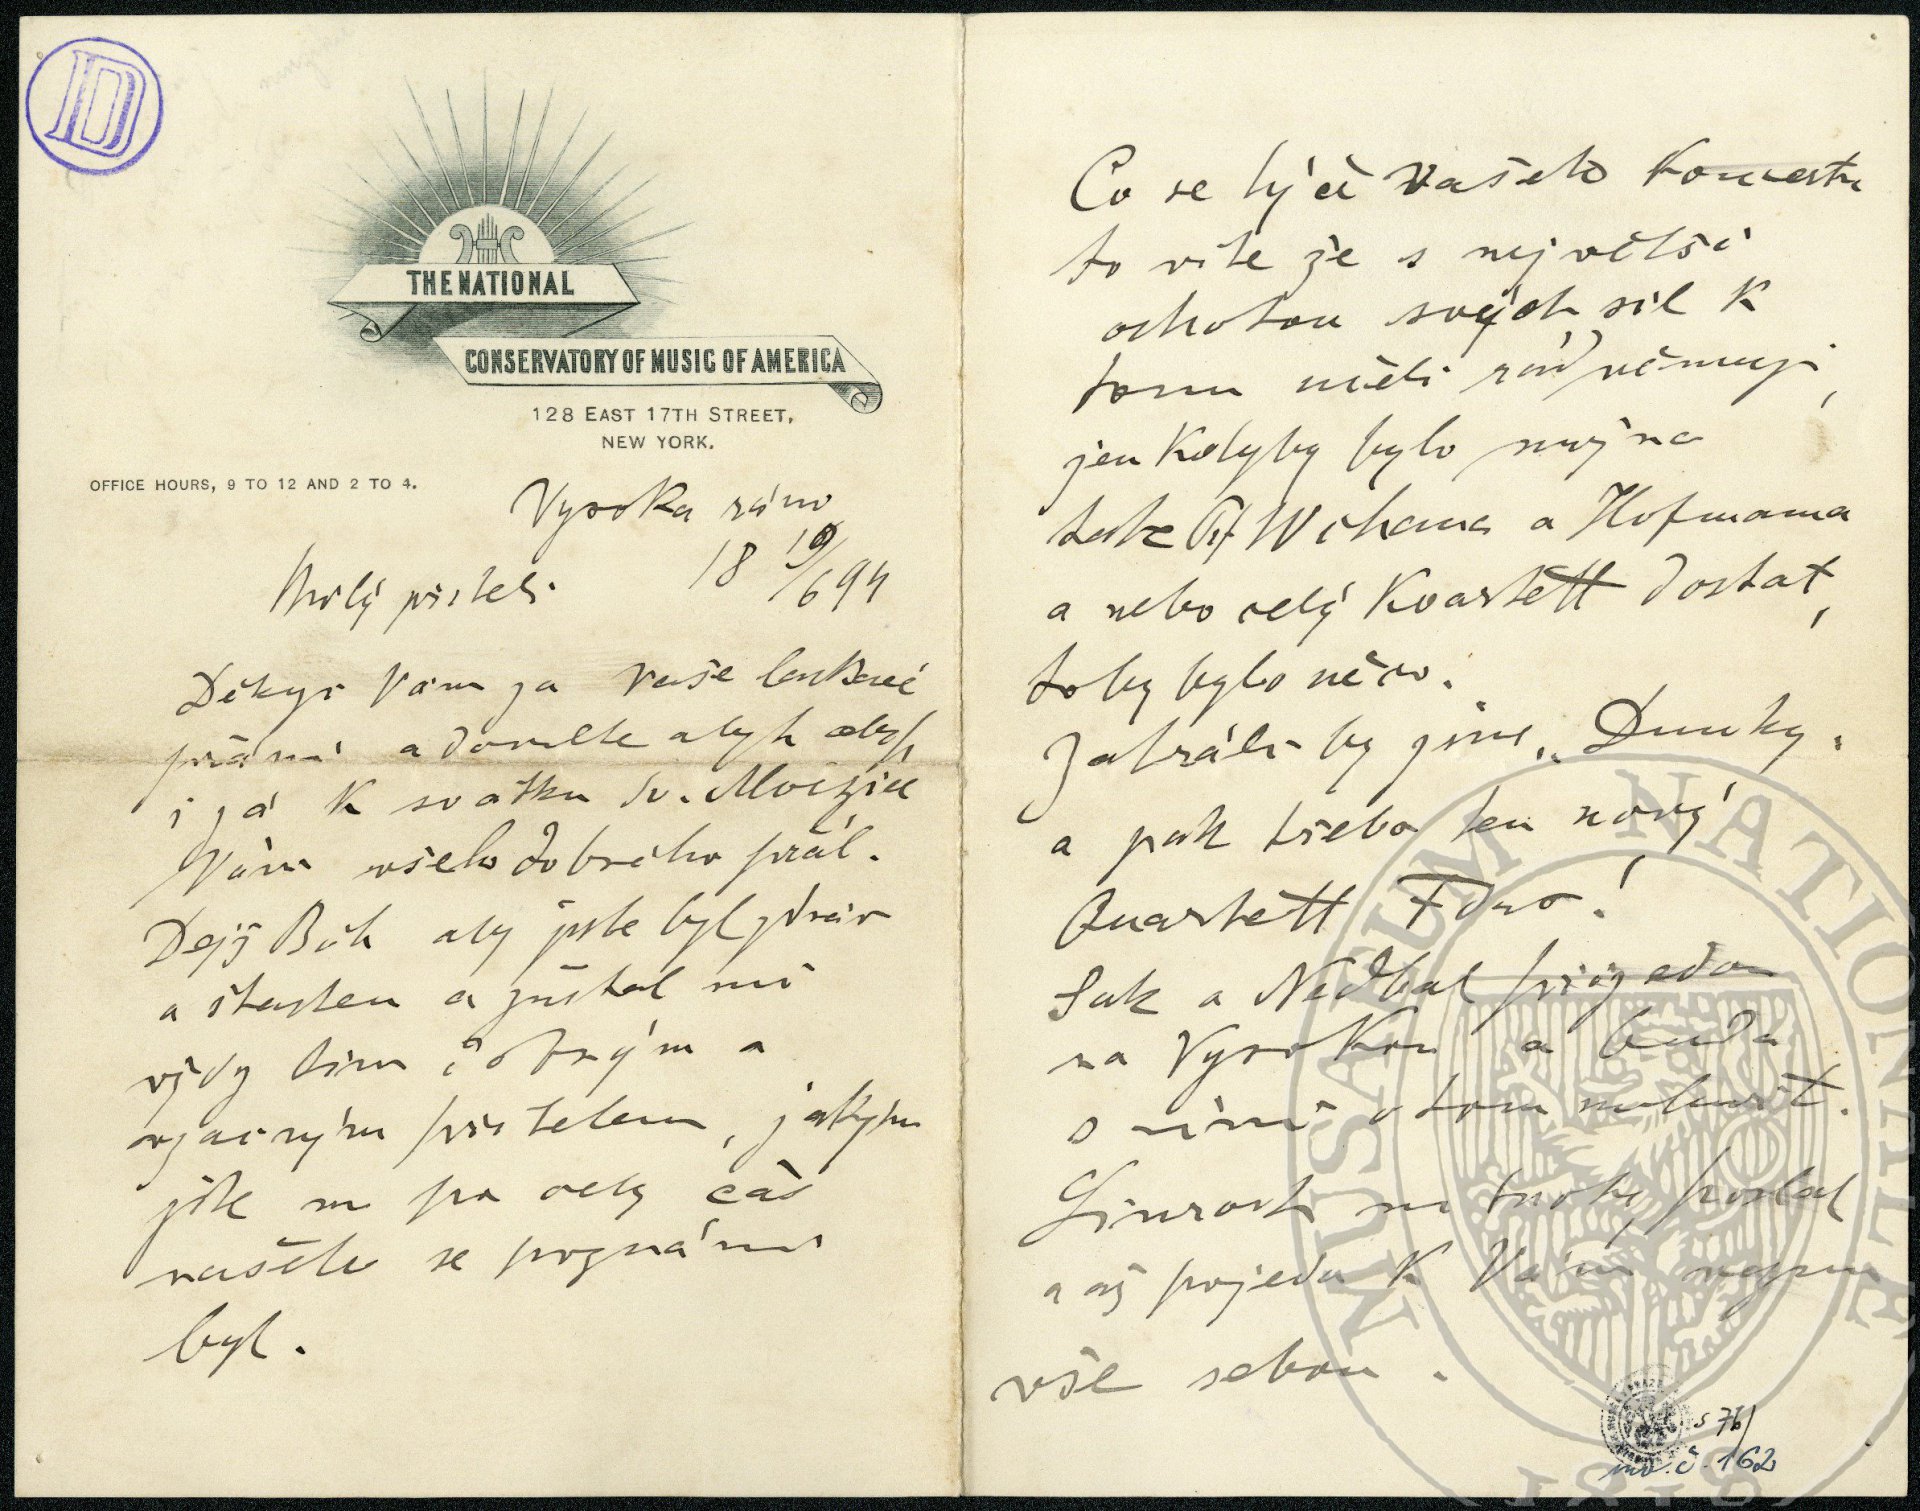 THE NATIONAL
CONSERVATORY OF MUSIC OF AMERICA
128 EAST 17TH STREET,
NEW YORK.
OFFICE HOURS, 9 TO 12 AND 2 TO 4.
Vysoka ráno
18 19/6 94
Milý příteli
Děkuji Vám za Vaše laskavé
přání a dovolte abych
i já k svátku sv. Aloizie
Vám všeho dobrého přál.
Dejž Bůh aby jste byl zdráv
a šťasten a zůstal mi
vždy tím dobrým a
vzácným přítelem, jakým
jste mi po celý čas
našeho se poznání
byl.
Co se týče Vašeho Koncertu
to víte že s největší
ochotou svých sil k
tomu účeli rád věnuji,
jen kdyby bylo možna
také Wihana a Hofmanna
a nebo celý Kvartett dostat,
toby bylo něco.
Zahráli by jsme „Dumky„
a pak třeba ten nový
Quartett F dur!
Suk a Nedbal přijedou
na Vysokou a budu
s nimi o tom mluvit.
Simrock mi noty poslal
a až pojedu k Vám vezmu
vše sebou.
s 76/
inv. č. 162
MUSAEUM NATIONALE
1818